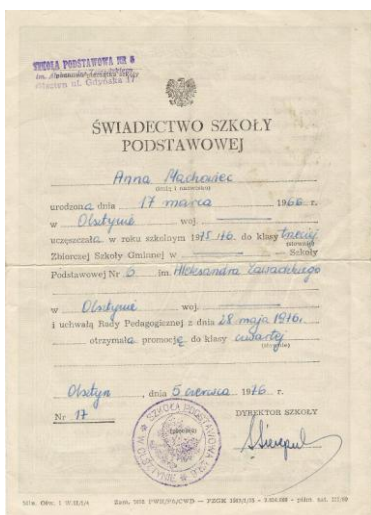 SZKOŁA PODSTAWOWA NR 6
im. Aleksandra Zawadzkiego
Olsztyn ul. Gdyńska 17
ŚWIADECTWO SZKOŁY
PODSTAWOWEJ
Anna Machowiec
(imię i nazwisko)
urodzona dnia 17 marca 1966 r.
w Olsztynie woj.
uczęszczała w roku szkolnym 1975/76. do klasy trzeciej
Zbiorczej Szkoły Gminnej w Szkoły
Podstawowej Nr 6 im. Aleksandra Zawadzkiego
w Olsztynie woj.
i uchwałą Rady Pedagogicznej z dnia 28 maja 1976.
otrzymała promocję do klasy czwartej
(słownie)
Olsztyn, dnia 5 czerwca 1976 r.
Nr 17
DYREKTOR SZKOŁY
SZKOŁA PODSTAWOWA NR 6
W OLSZTYNIE